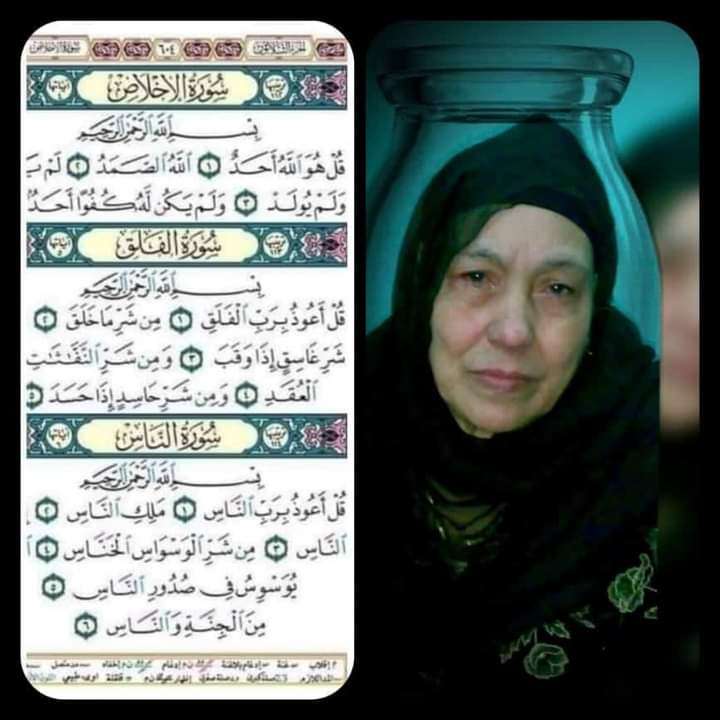 سُورَةُ الإِخْلَاصِ ٦٠٤ الجزء الثلاثون
سُورَةُ الإِخْلَاصِ
بِسْمِ اللَّهِ الرَّحْمَٰنِ الرَّحِيمِ
قُلْ هُوَ اللَّهُ أَحَدٌ ١ اللَّهُ الصَّمَدُ ٢ لَمْ يَـ
وَلَمْ يُولَدْ ٣ وَلَمْ يَكُن لَّهُ كُفُوًا أَحَدٌ
سُورَةُ الفَلَقِ
بِسْمِ اللَّهِ الرَّحْمَٰنِ الرَّحِيمِ
قُلْ أَعُوذُ بِرَبِّ الْفَلَقِ ١ مِن شَرِّ مَا خَلَقَ ٢
شَرِّ غَاسِقٍ إِذَا وَقَبَ ٣ وَمِن شَرِّ النَّفَّاثَاتِ
الْعُقَدِ ٤ وَمِن شَرِّ حَاسِدٍ إِذَا حَسَدَ ٥
سُورَةُ النَّاسِ
بِسْمِ اللَّهِ الرَّحْمَٰنِ الرَّحِيمِ
قُلْ أَعُوذُ بِرَبِّ النَّاسِ ١ مَلِكِ النَّاسِ ٢
النَّاسِ ٣ مِن شَرِّ الْوَسْوَاسِ الْخَنَّاسِ ٤
يُوَسْوِسُ فِي صُدُورِ النَّاسِ ٥
مِنَ الْجِنَّةِ وَالنَّاسِ ٦